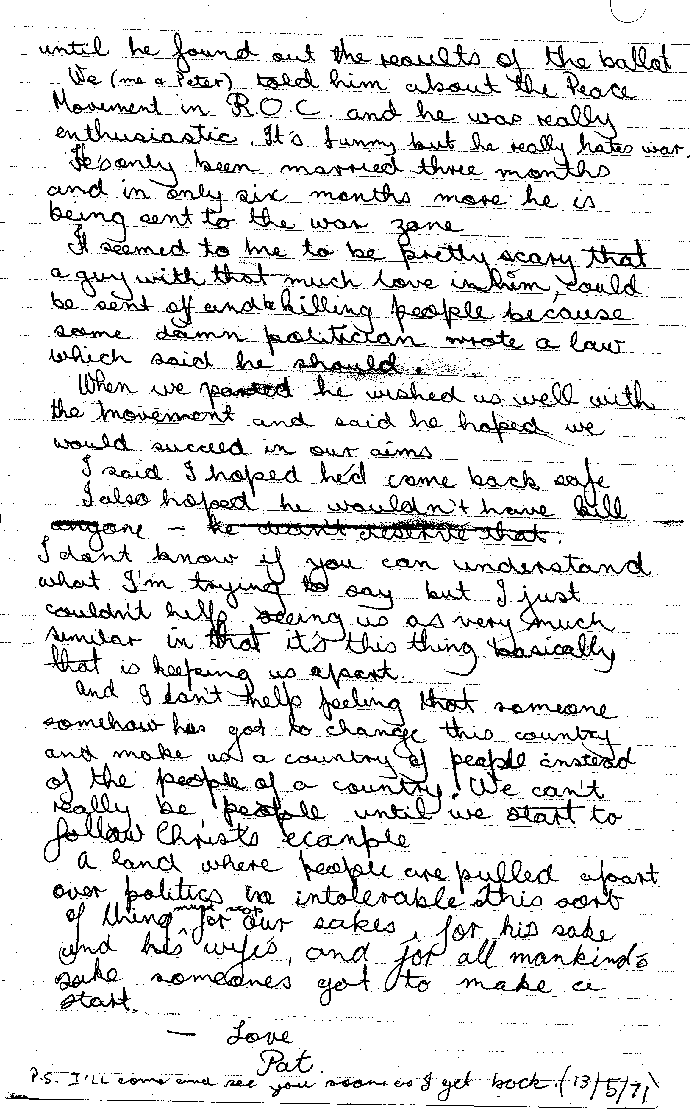 until he found out the results of the ballot
We (me & Peter) told him about the Peace
Movement in R.O.C. and he was really
enthusiastic. It's funny but he really hates war.
He's only been married three months
and in only six months more he is
being sent to the war zone
It seemed to me to be pretty scary that
a guy with that much love in him, could
be sent off and killing people because
some damn politician wrote a law
which said he should.
When we parted he wished us well with
the movement and said he hoped we
would succeed in our aims
I said I hoped he'd come back safe
I also hoped he wouldn't have kill
anyone - he didn't deserve that.
I don't know if you can understand
what I'm trying to say but I just
couldn't help seeing us as very much
similar in that it's this thing basically
that is keeping us apart
and I can't help feeling that someone
somehow has got to change this country
and make us a country of people instead
of the people of a country. We can't
really be people until we start to
follow Christs example
A land where people are pulled apart
over politics is intolerable this sort
of thing must stop
for our sakes, for his sake
and his wifes, and for all mankind's
sake someones got to make a
start.
- Love
Pat
P.S. I'll come and see you soon as I get back. (13/5/71)